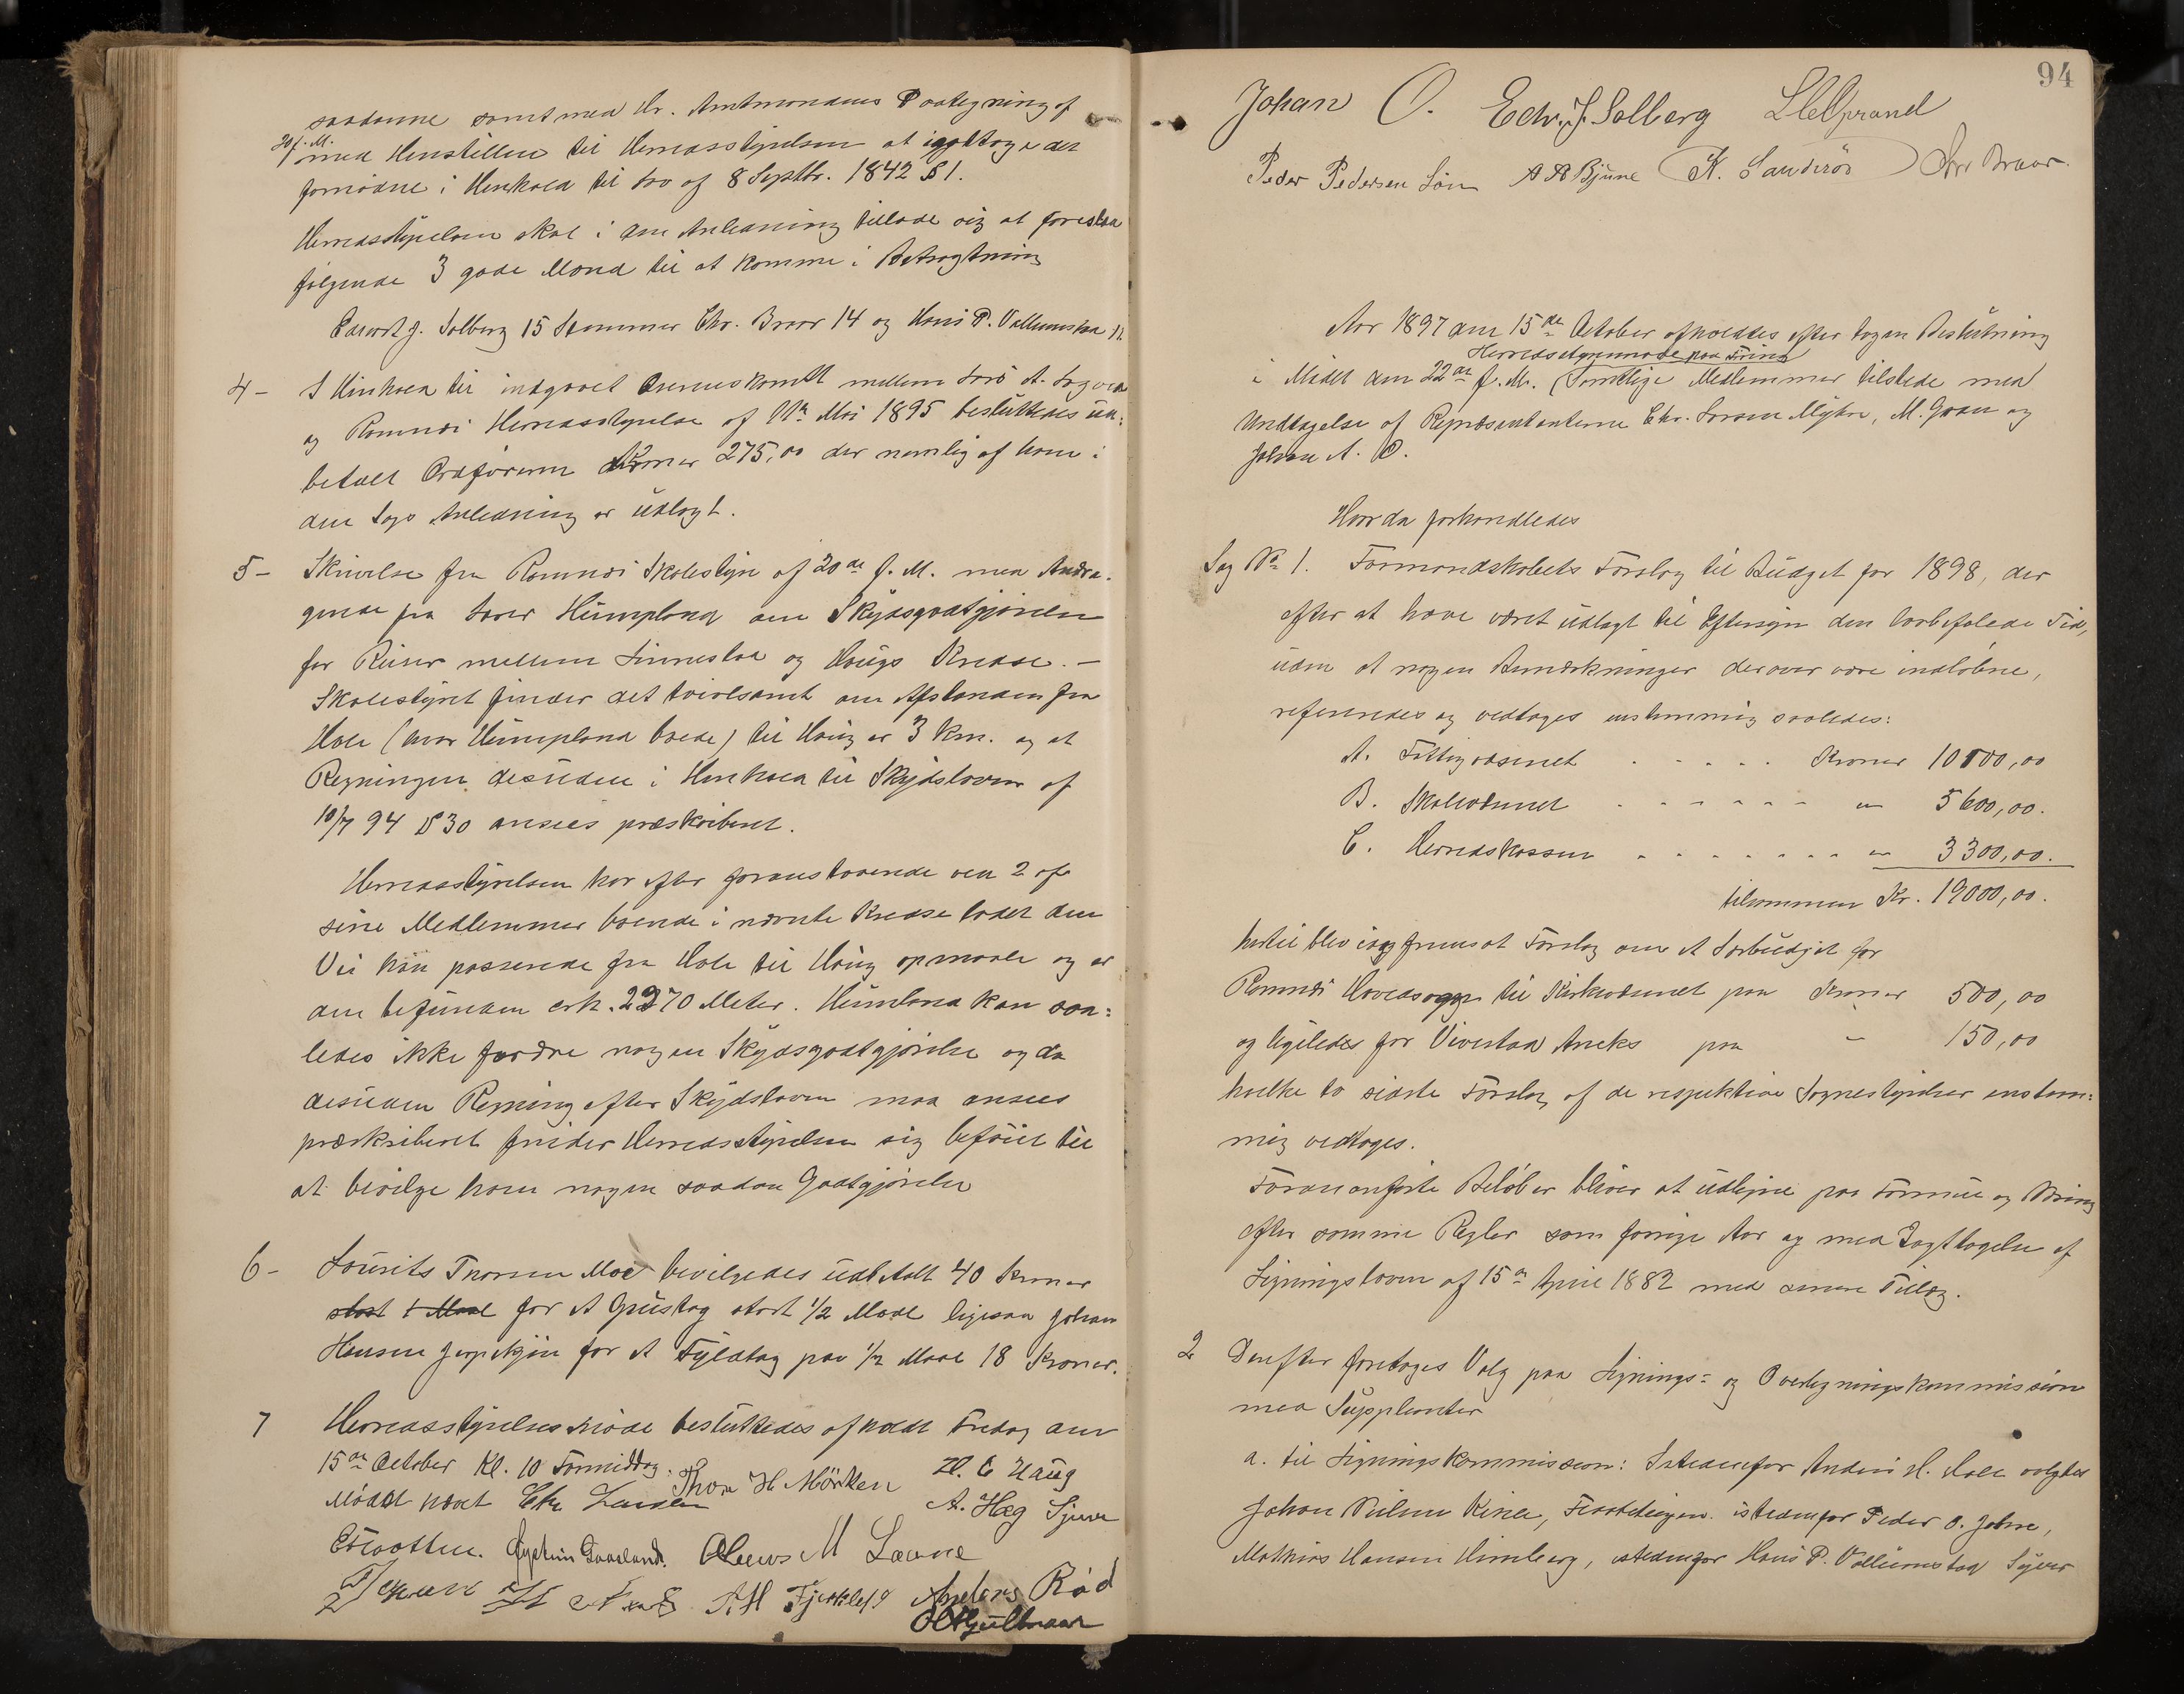 saadanne samt med Hr. Amtmandens Paategning af
20/f. M. med Henstillen til Herredsstyrelsen at iagttage det
fornødne i Henhold til Lov af 8 Septbr. 1842 § 1.
Herredsstyrelsen skal i den Anledning tillade sig at foreslaa
følgende 3 gode Mænd til at komme i Betragtning
Edvart J. Solberg 15 Stemmer Chr. Braar 14 og Hans P. Vallumstad
4- I Henhold til indgaaet mellem
og Ramnæs Herredsstyrelse af Mai 1895 besluttedes ud-
betalt Ordføreren Kroner 275,00 der nemlig af ham i
den Sags Anledning er udlagt.
5- Skrivelse fra Ramnæs Skolestyre af 20de f. M. med Andra-
gende fra Lærer Humpland om Skydsgodtgjørelse
for Reiser mellem Linnestad og Haugs Kredse. -
Skolestyret finder det tvivlsomt om Afstanden fra
Hole (hvor Humpland boede) til Haug er 3 Km. og at
Regningen desuden i Henhold til Skydsloven af
10/7 94 § 30 ansees præskriberet.
Herredsstyrelsen har efter foranstaaende ved 2 af
sine Medlemmer boende i nævnte Kredse ladet den
Vei han passerede fra Hole til Haug opmaale og er
den befunden cirk. 2270 Meter. Humpland kan saa-
ledes ikke fordre nogen Skydsgodtgjørelse og da
desuden Regning efter Skydsloven maa ansees
præskriberet finder Herredsstyrelsen sig beføiet til
at bevilge ham nogen saadan Godtgjørelse
6- Lourits Thorsen Moe bevilgedes udbetalt 40 Kroner
stort 1 Maal for et Grustag stort 1/2 Maal ligesaa Johan
Hansen for et Fyldtag paa 1/2 Maal 18 Kroner.
7 Herredsstyrelsesmøde besluttedes afholdt Fredag den
15de October Kl. 10 Formiddag.
Mødet hævet Chr Larsen Thorn H. Mörken H. C Haug
A. Hæg Sjuve
Gaasland. M
Anders Rød
94
Johan O. Edv. J. Solberg
Peder Pedersen Lön A A Bjune K. Sanderöd Chr Braar
Aar 1897 den 15de October afholdtes efter tagen Beslutning
Herredsstyremøde paa
i Mødet den 22de f. M. Samtlige Medlemmer tilstede med
Undtagelse af Repræsentanterne Chr. Larsen Myhre, M. Gran og
Johan A. O.
Hvor da forhandledes
Sag No 1. Formandskabets Forslag til Budget for 1898, der
efter at have været udlagt til Eftersyn den lovbefalede Tid,
uden at nogen Anmærkninger derover vare indløbne,
refereredes og vedtoges enstemmig saaledes:
A. Fattigvæsenet . . . . . Kroner 10100,00
B. Skolevæsenet - - - - - - " 5600,00.
C. Herredskassen - - - - - - - " 3300,00.
tilsammen Kr. 19000,00.
hertil blev og fremsat Forslag om et Særbudget for
Ramnæs Hovedsogn til Kirkevæsenet paa Kroner 500,00
og ligeledes for Vivestad Aneks paa - 150,00
hvilke to sidste Forslag af de respektive Sognestyrelser enstem-
mig vedtoges.
Forananførte Beløb er bliver at udligne paa Formue og Næring
efter samme Regler som forrige Aar og med Iagttagelse af
Ligningsloven af 15de April 1882 med senere Tillæg.
2 Derefter foretoges Valg paa Lignings- og Overligningskommission
med Supplanter
a. til Ligningskommission: Istedenfor Anders H. Hole valgtes
Johan Nilsen istedenfor Peder O. Jahre,
Mathias Hansen Himberg, istedenfor Hans P. Vallumstad Syver